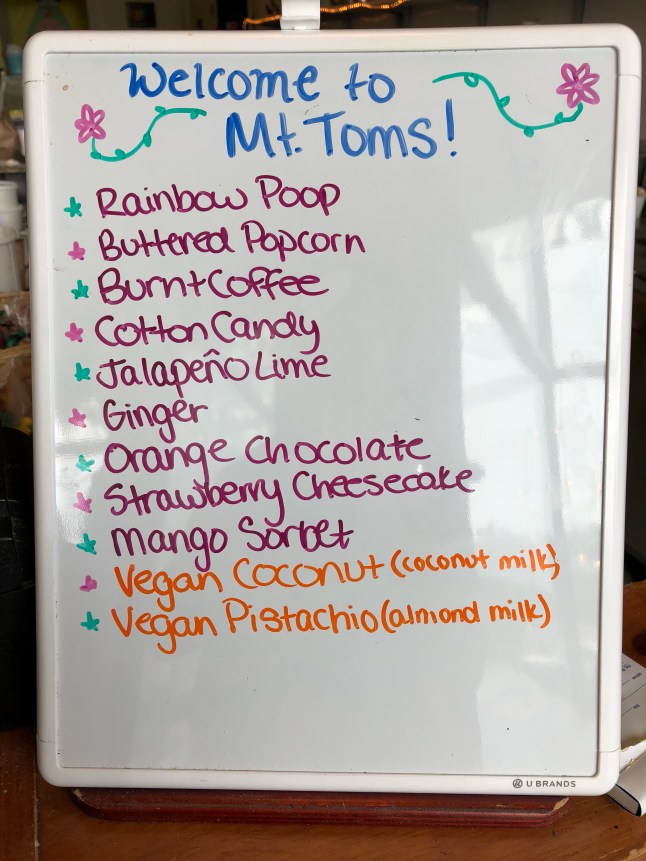 Welcome to
Mt. Toms!
Rainbow Poop
Buttered Popcorn
Burnt Coffee
Cotton Candy
Jalapeño Lime
Ginger
Orange Chocolate
Strawberry Cheesecake
Mango Sorbet
Vegan Coconut (coconut milk)
Vegan Pistachio (almond milk)
U BRANDS